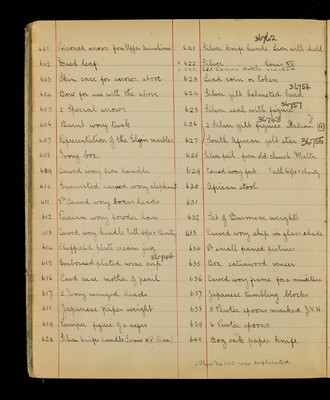 601 Poisoned arrows from Upper
602 Dried leaf
603 Skin case for arrows above
604 Bow for use with the above
605 2 Special arrows
606 Burnt ivory tusk
607 Representation of the Elgin marbles
608 Ivory box
609 Carved ivory lion handle
610 carved ivory elephant
611 Pr Carved ivory boars heads
612 Persian ivory powder horn
613 Carved ivory handle Faith Hope & Charity
614 Sheffield plate cream jug
36744
615 Embossed plated wine cup
616 Card case mother of pearl
617 2 Ivory winged heads
618 Japanese paper weight
619 figure of a negro
620 Silver knife handle Louis XV (lion)
36762
621 Silver knife handle Lion with shield
622 Silver Louis XV
622
623 Lead coin or token
36754
624 Silver gilt helmeted head
36757
625 Silver seal with figure
36763
626 2 Silver gilt figures Italian
627 South African gilt star 36755
628 Silver from old church Malta
629 Carved ivory fork Faith Hope & Charity
630 African stool
631
632 Set of Burmese weights
633 Carved ivory ship in glass shade
634 Pr small framed pictures
635 Box satinwood veneer
636 Carved ivory frame for a miniature
637 Japanese tumbling blocks
638 3 Pewter spoons marked
639 6 Pewter spoons
640 Bog oak paper knife
This No 622 was duplicated